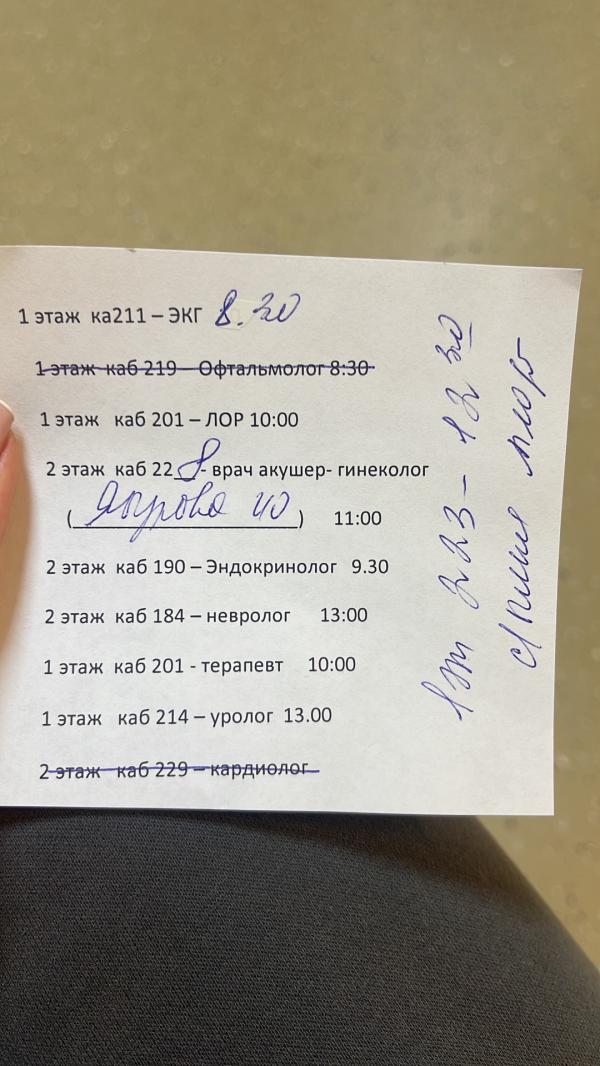 1 этаж ка211 – ЭКГ 8.30
1 этаж каб 219 – Офтальмолог 8:30
1 этаж каб 201 – ЛОР 10:00
2 этаж каб 22_8_- врач акушер- гинеколог
( ) 11:00
2 этаж каб 190 – Эндокринолог 9.30
2 этаж каб 184 – невролог 13:00
1 этаж каб 201 - терапевт 10:00
1 этаж каб 214 – уролог 13.00
2 этаж каб 229 – кардиолог
1 эт 223 – 12 30